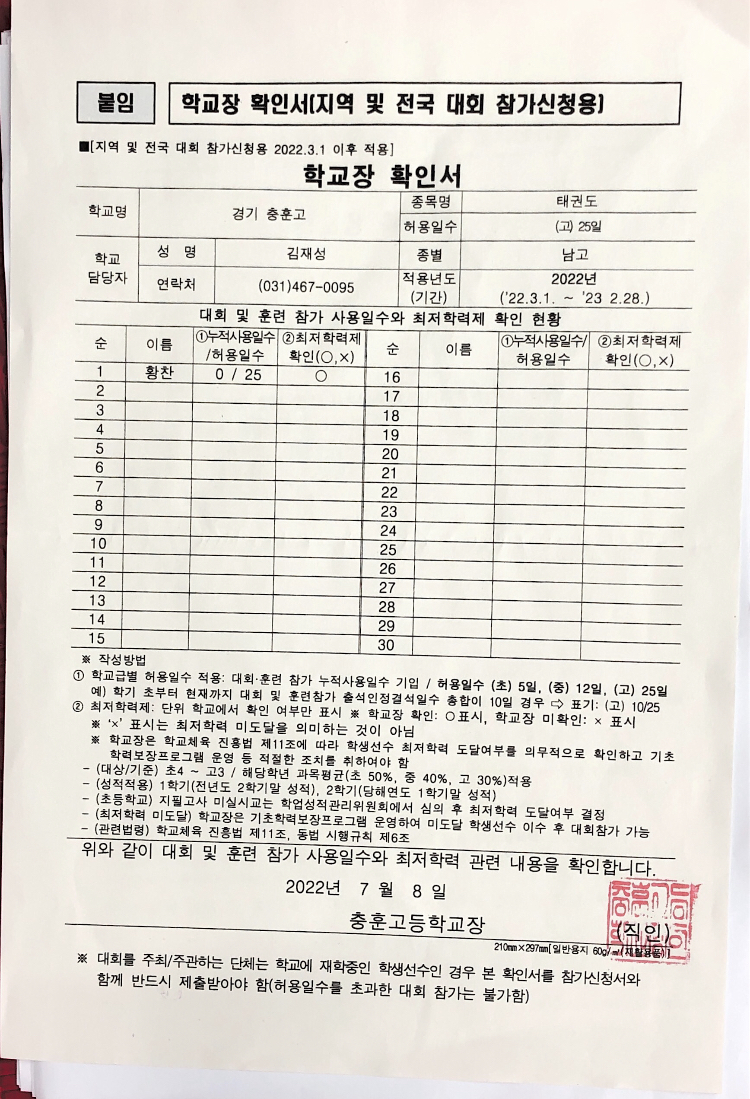 붙임
학교장 확인서(지역 및 전국 대회 참가신청용)
■[지역 및 전국 대회 참가신청용 2022.3.1 이후 적용]
학교장 확인서
학교명 경기 충훈고 종목명 태권도
허용일수 (고) 25일
학교 담당자 성 명 김재성 종별 남고
연락처 (031)467-0095 적용년도 (기간) 2022년 ('22.3.1. ~ '23 2.28.)
대회 및 훈련 참가 사용일수와 최저학력제 확인 현황
순 이름 ①누적사용일수/허용일수 ②최저학력제 확인(○,×) 순 이름 ①누적사용일수/허용일수 ②최저학력제 확인(○,×)
1 황찬 0 / 25 ○ 16
2 17
3 18
4 19
5 20
6 21
7 22
8 23
9 24
10 25
11 26
12 27
13 28
14 29
15 30
※ 작성방법
① 학교급별 허용일수 적용: 대회·훈련 참가 누적사용일수 기입 / 허용일수 (초) 5일, (중) 12일, (고) 25일
예) 학기 초부터 현재까지 대회 및 훈련참가 출석인정결석일수 총합이 10일 경우 ⇨ 표기: (고) 10/25
② 최저학력제: 단위 학교에서 확인 여부만 표시 ※ 학교장 확인: ○표시, 학교장 미확인: × 표시
※ '×' 표시는 최저학력 미도달을 의미하는 것이 아님
※ 학교장은 학교체육 진흥법 제11조에 따라 학생선수 최저학력 도달여부를 의무적으로 확인하고 기초
학력보장프로그램 운영 등 적절한 조치를 취하여야 함
- (대상/기준) 초4 ~ 고3 / 해당학년 과목평균(초 50%, 중 40%, 고 30%)적용
- (성적적용) 1학기(전년도 2학기말 성적), 2학기(당해연도 1학기말 성적)
- (초등학교) 지필고사 미실시교는 학업성적관리위원회에서 심의 후 최저학력 도달여부 결정
- (최저학력 미도달) 학교장은 기초학력보장프로그램 운영하여 미도달 학생선수 이수 후 대회참가 가능
- (관련법령) 학교체육 진흥법 제11조, 동법 시행규칙 제6조
위와 같이 대회 및 훈련 참가 사용일수와 최저학력 관련 내용을 확인합니다.
2022년 7 월 8 일
충훈고등학교장 (직인)
210㎜×297㎜[일반용지 60g/㎡(재활용품)]
※ 대회를 주최/주관하는 단체는 학교에 재학중인 학생선수인 경우 본 확인서를 참가신청서와
함께 반드시 제출받아야 함(허용일수를 초과한 대회 참가는 불가함)